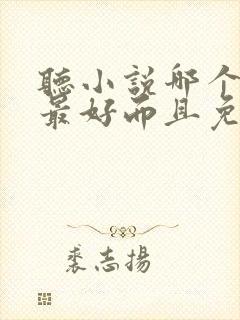 聽小說那个
最好而且免
裘志揚